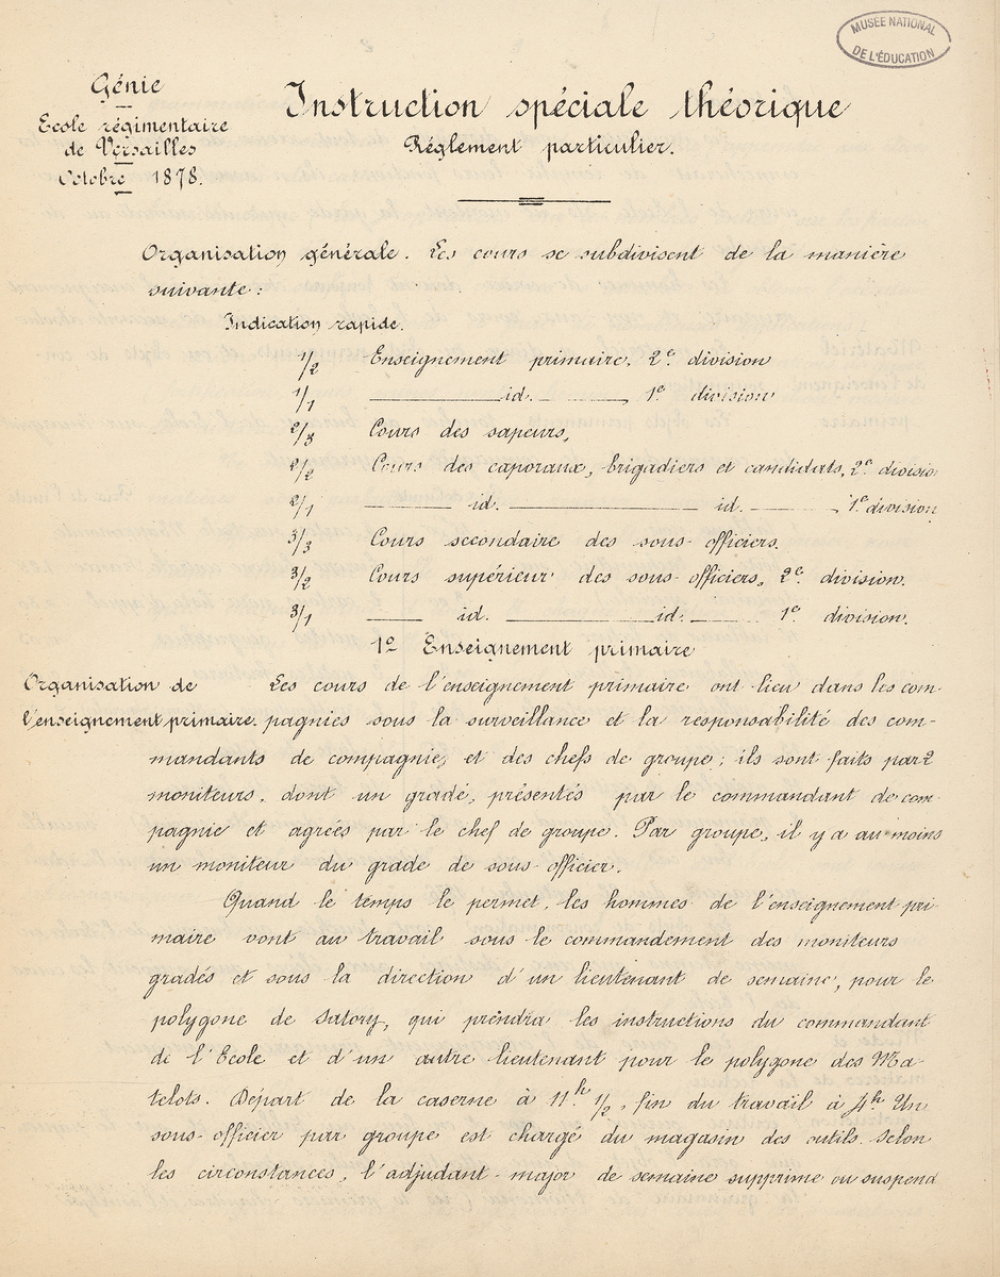 MUSÉE NATIONAL
DE L'ÉDUCATION
Génie
Ecole régimentaire
de Versailles
Octobre 1878.
Instruction spéciale théorique
Réglement particulier.
Organisation générale. Les cours se subdivisent de la manière
suivante :
Indication rapide.
1/2 Enseignement primaire. 2e division
1/1 id. 1e division
2/3 Cours des sapeurs,
2/2 Cours des caporaux, brigadiers et candidats, 2e divisio
2/1 id. id. 1e division
3/3 Cours secondaire des sous-officiers.
3/2 Cours supérieur des sous-officiers, 2e division.
3/1 id. id. 1e division.
1º Enseignement primaire
Organisation de
l'enseignement primaire.
Les cours de l'enseignement primaire ont lieu dans les com-
pagnies sous la surveillance et la responsabilité des com-
mandants de compagnie, et des chefs de groupe ; ils sont faits par 2
moniteurs, dont un gradé, présentés par le commandant de com-
pagnie et agréés par le chef de groupe. Par groupe, il y a au moins
un moniteur du grade de sous-officier.
Quand le temps le permet, les hommes de l'enseignement pri-
maire vont au travail sous le commandement des moniteurs
gradés et sous la direction d'un lieutenant de semaine, pour le
polygone de Satory, qui prendra les instructions du commandant
de l'Ecole et d'un autre lieutenant pour le polygone des Ma-
telots. Départ de la caserne à 11h 1/2, fin du travail à 4h. Un
sous-officier par groupe est chargé du magasin des outils. Selon
les circonstances, l'adjudant-major de semaine supprime ou suspend